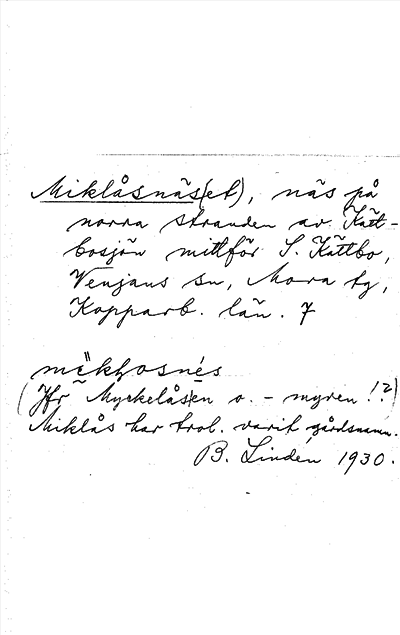 Miklåsnäs(et), näs på
norra stranden av Kätt-
bosjön mittför S. Kättbo,
Venjans sn, Mora tg,
Kopparb. län. 7
(Jfr Myckelåsen o. -myren!?)
Miklås har trol. varit gårdsnamn.
B. Linden 1930.